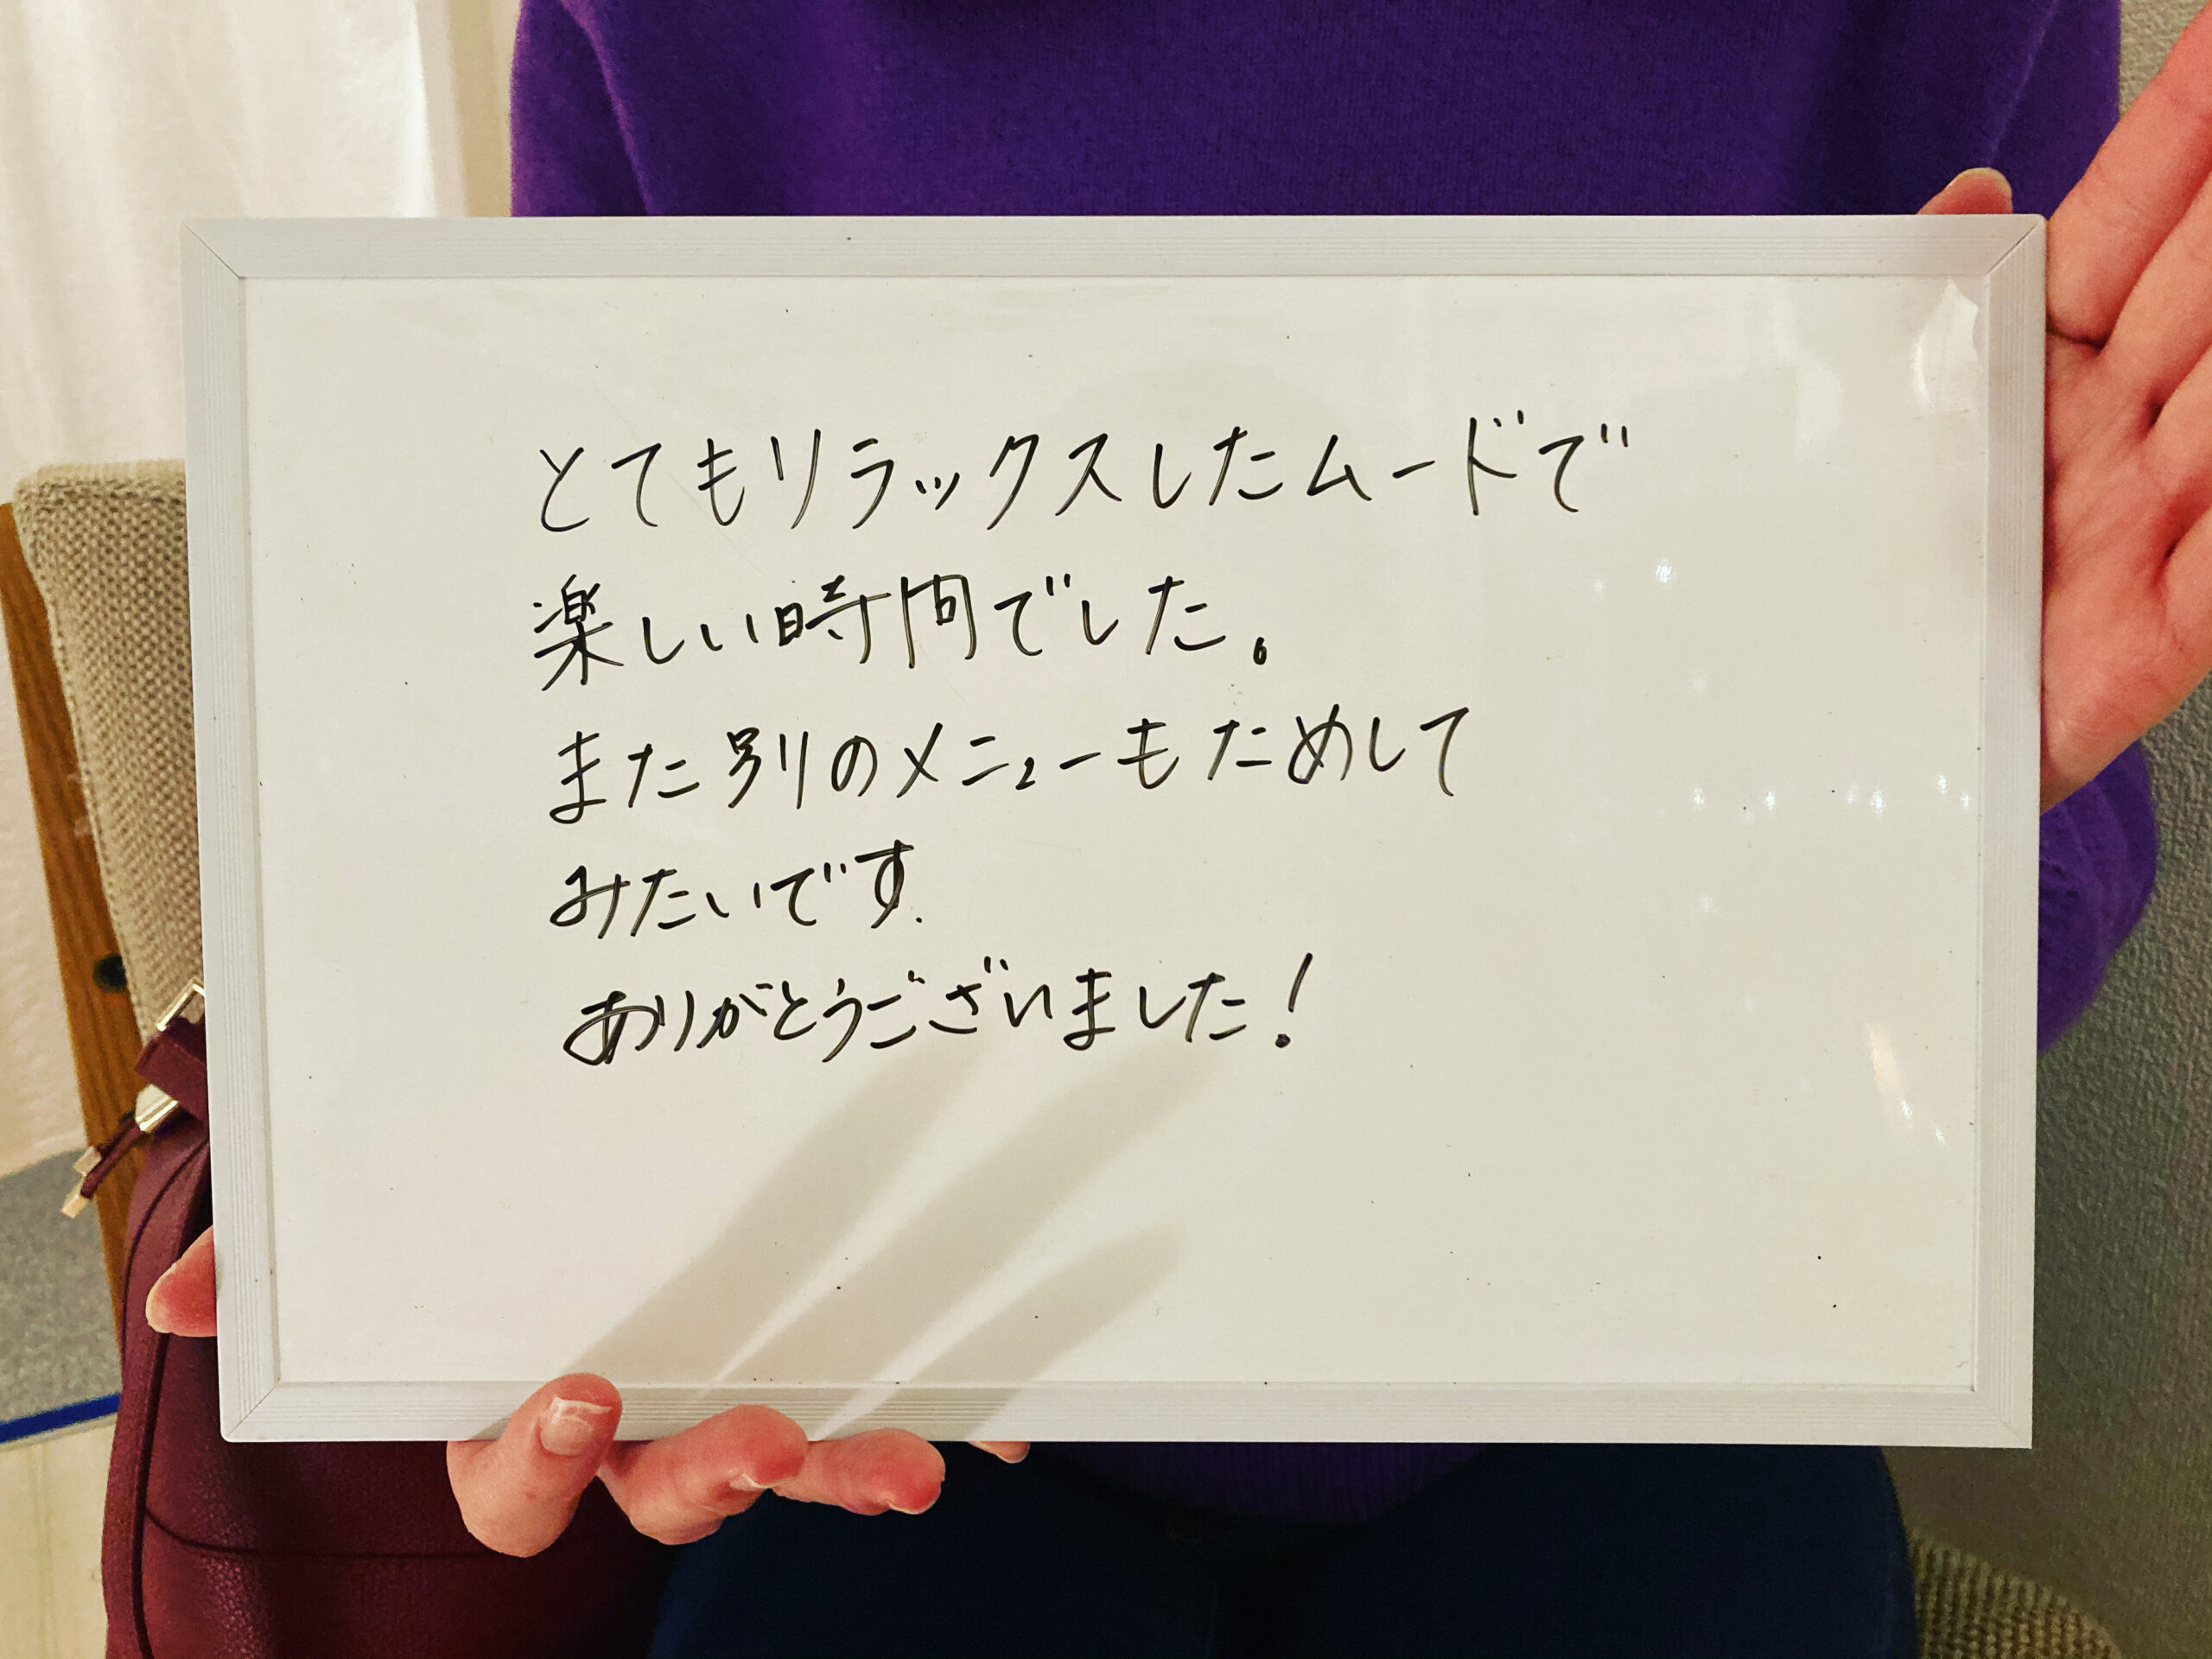 とてもリラックスしたムードで
楽しい時間でした。
また別のメニューもためして
みたいです.
ありがとうございました!